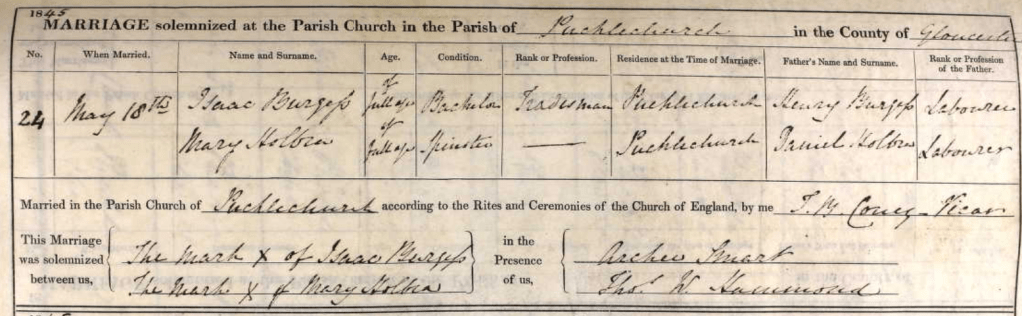 1845
MARRIAGE solemnized at the Parish Church in the Parish of Pucklechurch in the County of Gloucester
No. When Married. Name and Surname. Age. Condition. Rank or Profession. Residence at the Time of Marriage. Father's Name and Surname. Rank or Profession of the Father.
24 May 18th Isaac Burgess of full age Bachelor Tradesman Pucklechurch Henry Burgess Labourer
Mary Holbra of full age Spinster — Pucklechurch Daniel Holbra Labourer
Married in the Parish Church of Pucklechurch according to the Rites and Ceremonies of the Church of England, by me T. B. Coney Vicar
This Marriage was solemnized between us, The mark X of Isaac Burgess in the Presence of us, Archer Smart
The mark X of Mary Holbra Thos W Hammond